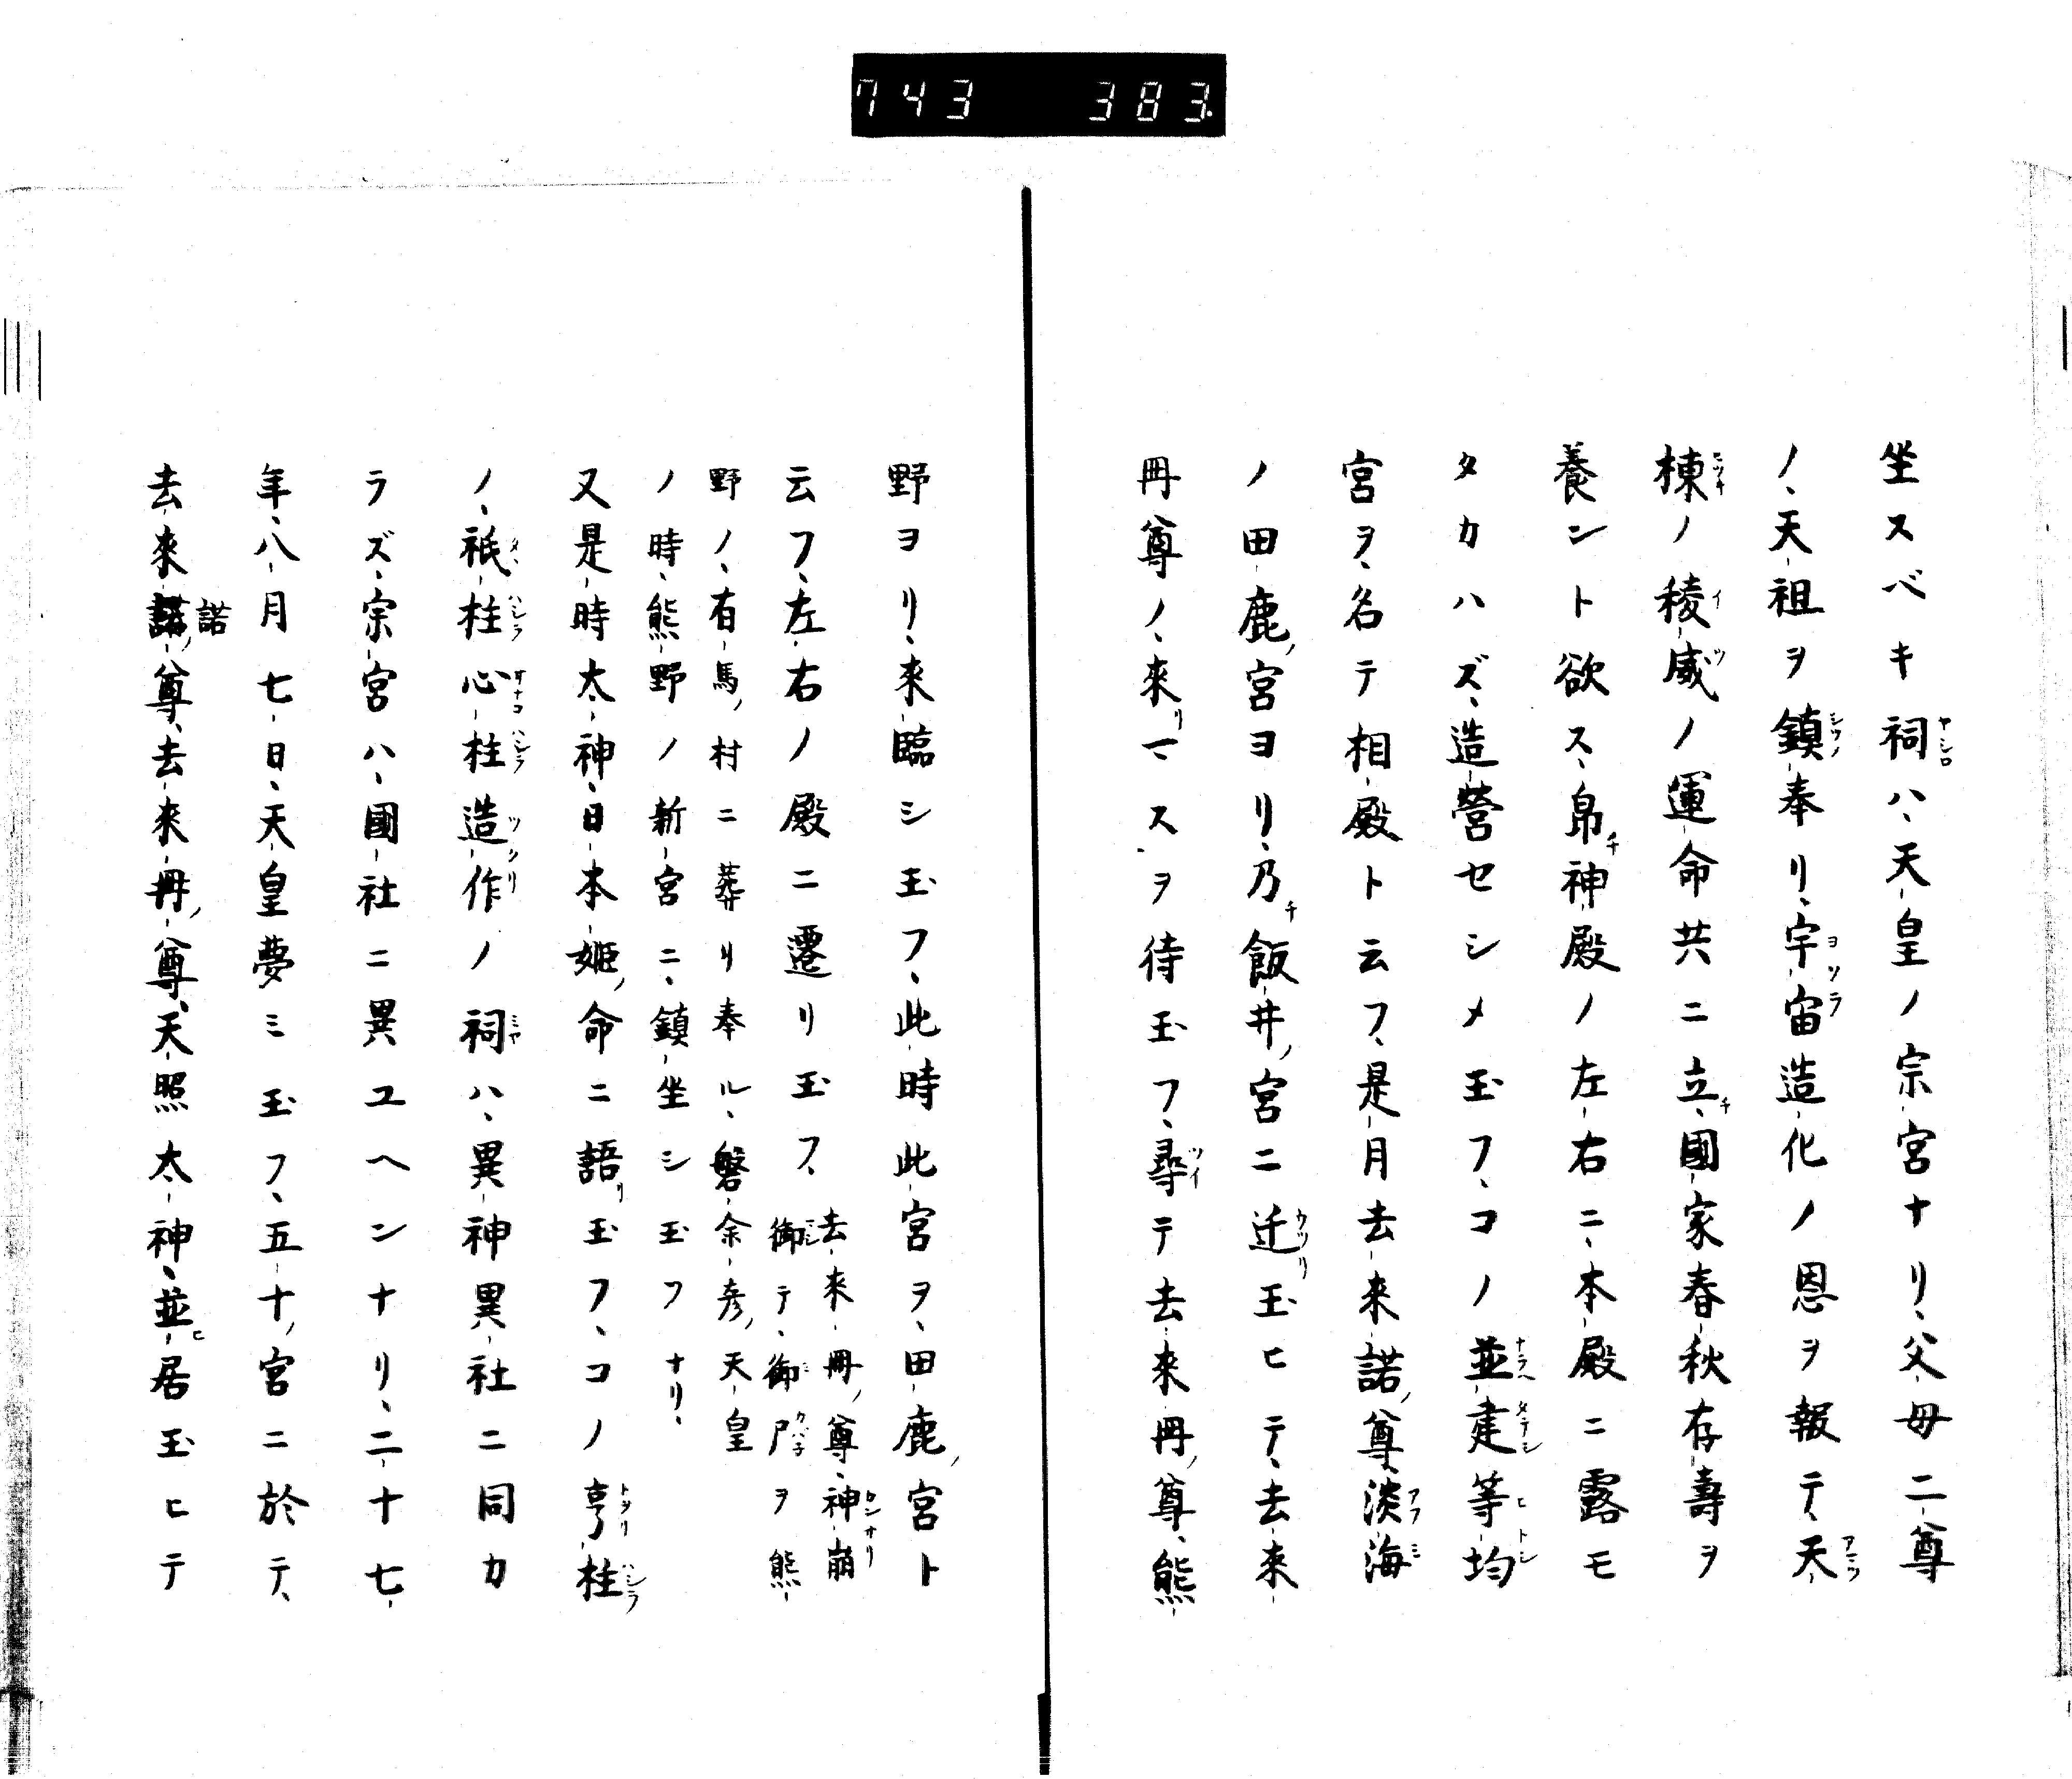 743 383
坐スベキ祠ハ、天皇ノ宗宮ナリ、父母二尊
ノ、天祖ヲ鎮奉リ、宇宙造化ノ恩ヲ報テ、天
棟ノ稜威ノ運命共ニ立、國家春秋存壽ヲ
養ント欲ス、帛神殿ノ左右ニ、本殿ニ露モ
タカハズ、造營セシメ玉フ、コノ並建等均
宮ヲ、名テ相殿ト云フ、是月去来諾尊、淡海
ノ田鹿宮ヨリ、乃飯井宮ニ迁玉ヒテ、去来
冊尊ノ、來マスヲ待玉フ、尋テ去来冊尊、熊
野ヨリ、來臨シ玉フ、此時此宮ヲ、田鹿宮ト
云フ、左右ノ殿ニ遷リ玉フ、
去来冊尊、神崩
御テ、御尸ヲ熊
野ノ、有馬村ニ葬リ奉ル、磐余彦天皇
ノ時、熊野ノ新宮ニ、鎮坐シ玉フナリ、
又是時太神、日本姫命ニ語玉フ、コノ亨柱
ノ、祇柱心柱造作ノ祠ハ、異神異社ニ同カ
ラズ、宗宮ハ、國社ニ異ユヘンナリ、二十七
年、八月七日、天皇夢ミ玉フ、五十宮ニ於テ、
去來諾尊、去来冊尊、天照太神、並居玉ヒテ